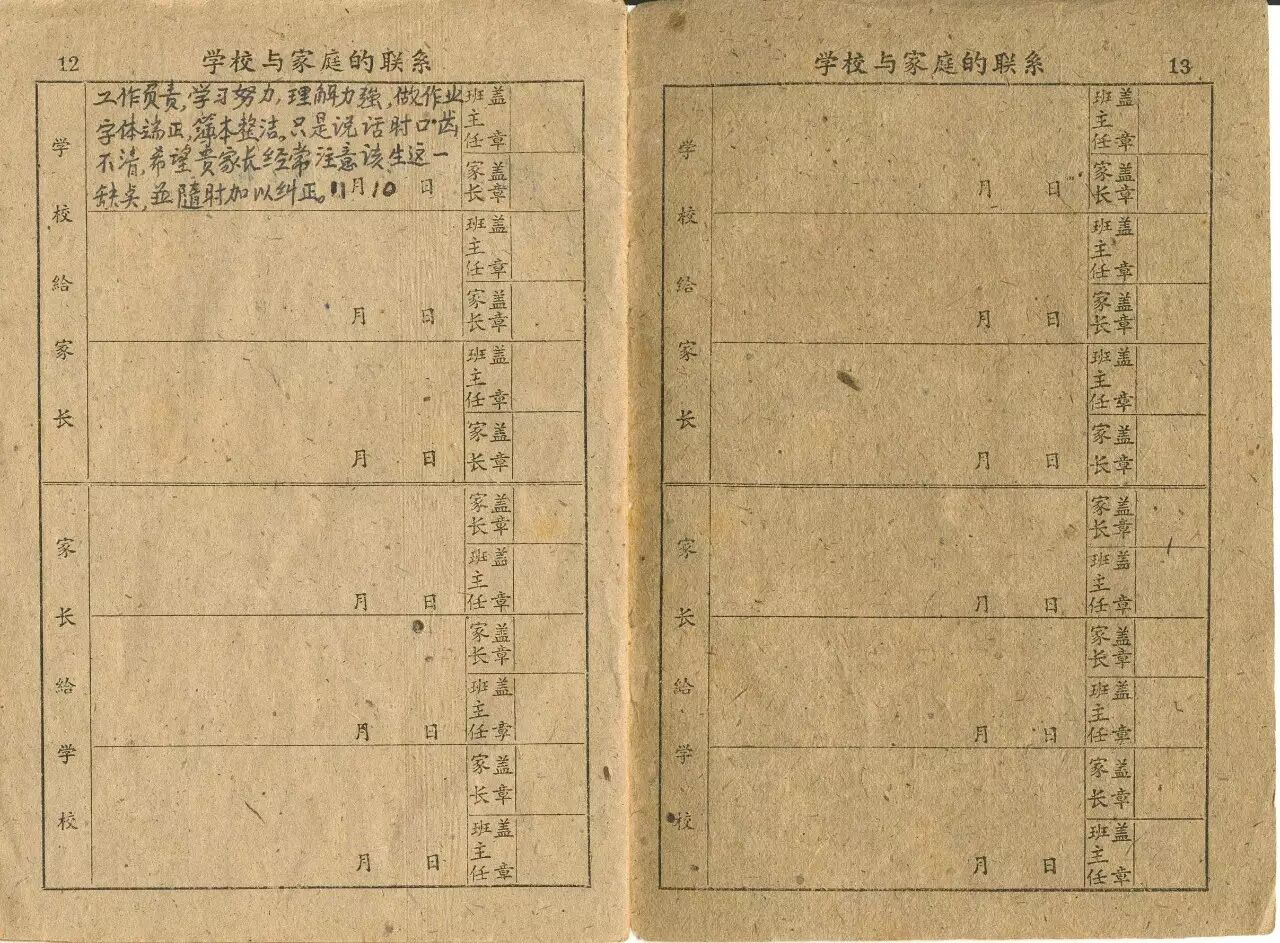 12
学校与家庭的联系
学校给家长
工作负责,学习努力,理解力强,做作业
字体端正,簿本整洁。只是说话时口齿
不清,希望贵家长经常注意该生这一
缺点,並隨时加以纠正。11月10日
班主任盖章
家长盖章
月 日
班主任盖章
家长盖章
月 日
班主任盖章
家长盖章
家长給学校
月 日
家长盖章
班主任盖章
月 日
家长盖章
班主任盖章
月 日
家长盖章
班主任盖章
学校与家庭的联系
13
学校給家长
月 日
班主任盖章
家长盖章
月 日
班主任盖章
家长盖章
月 日
班主任盖章
家长盖章
家长給学校
月 日
家长盖章
班主任盖章
月 日
家长盖章
班主任盖章
月 日
家长盖章
班主任盖章